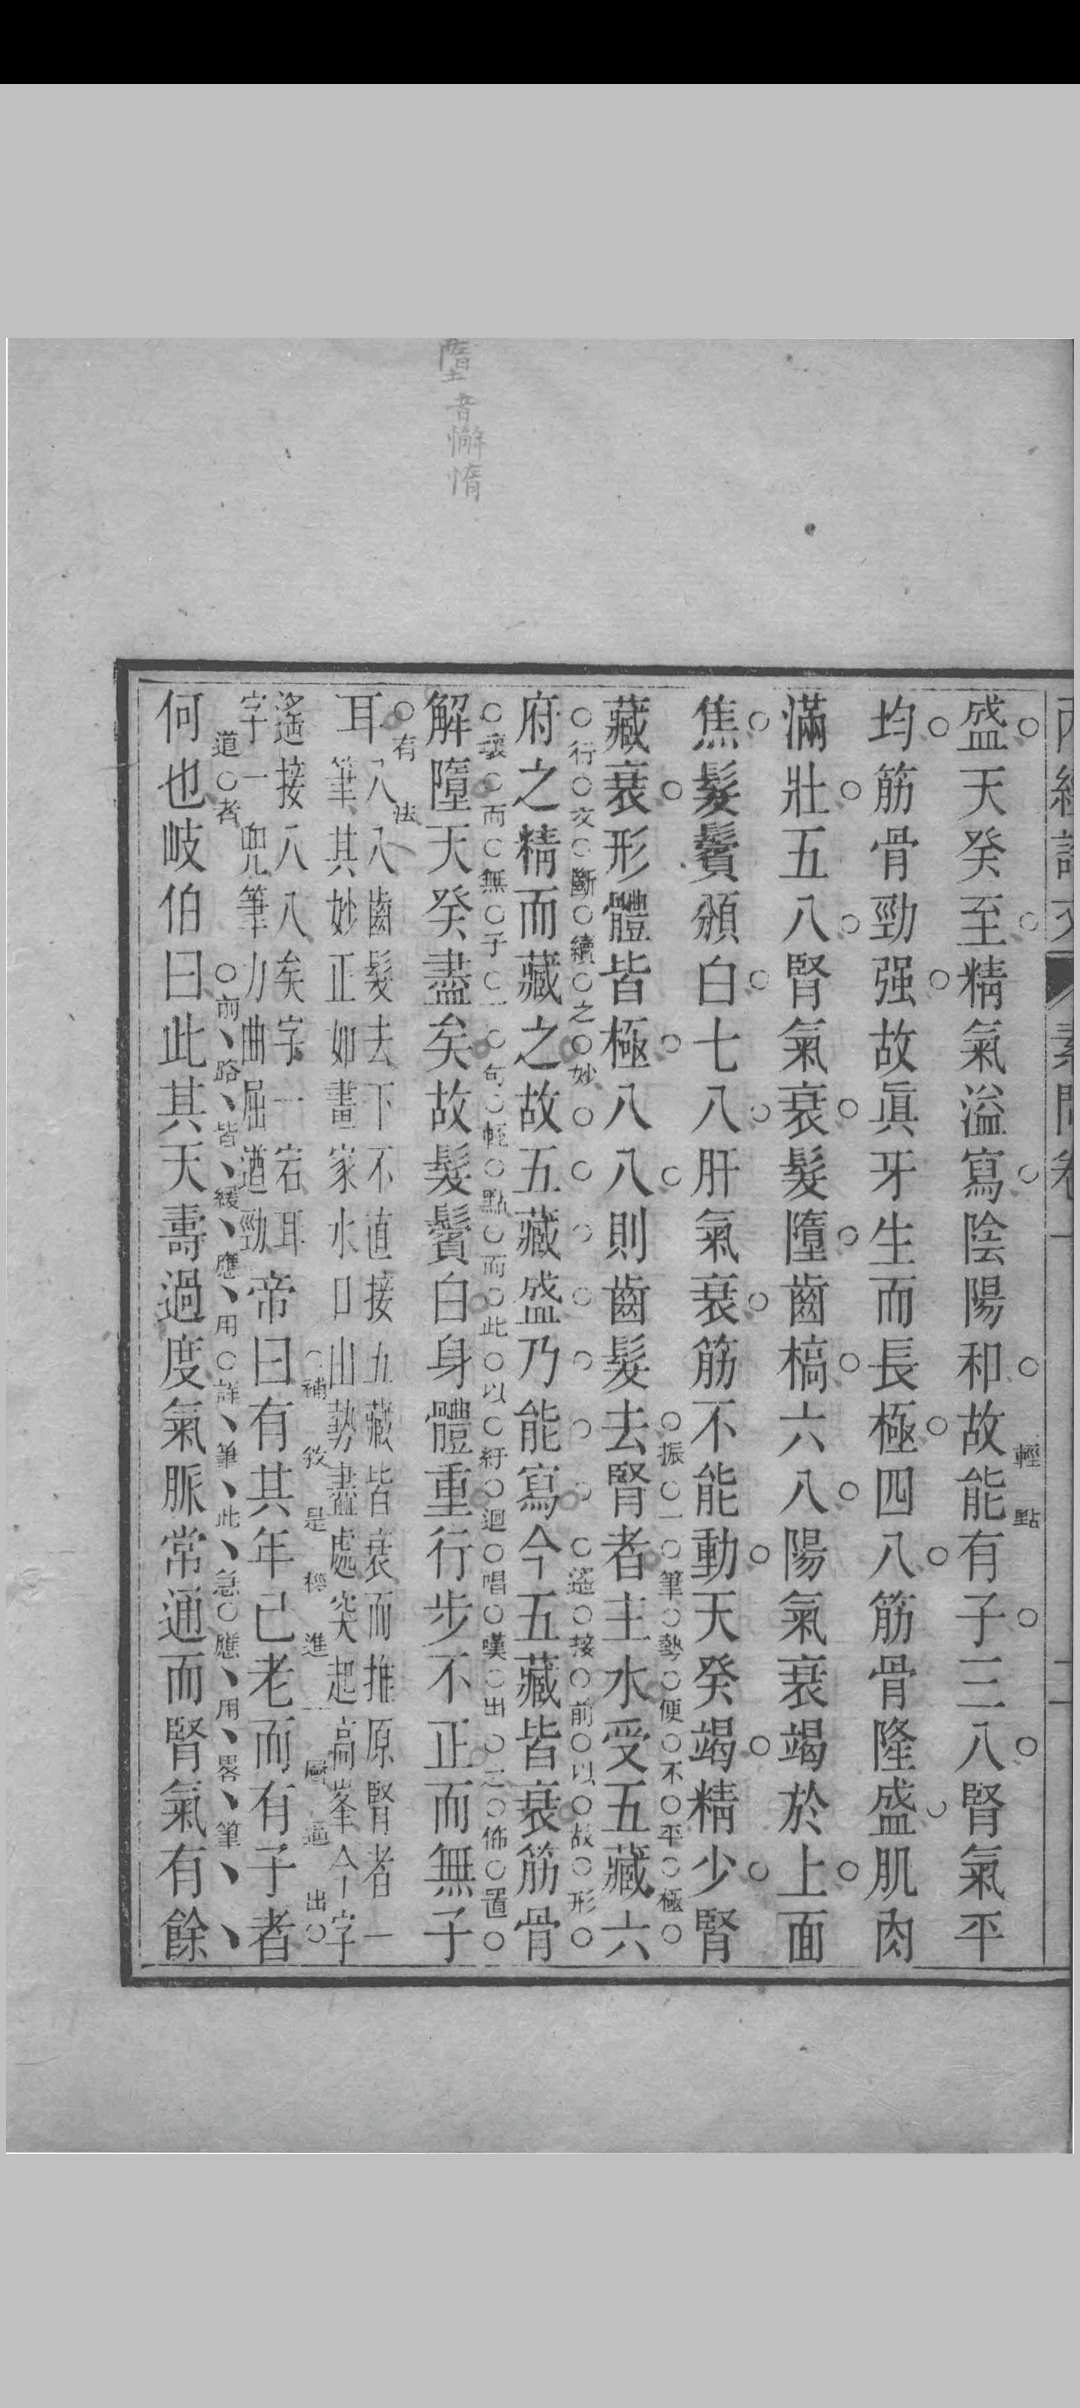 墮音懈惰
內經評文 素問卷一 二
輕點
盛天癸至精氣溢寫陰陽和故能有子三八腎氣平
均筋骨勁强故眞牙生而長極四八筋骨隆盛肌肉
滿壯五八腎氣衰髮墮齒槁六八陽氣衰竭於上面
焦髮鬢頒白七八肝氣衰筋不能動天癸竭精少腎
振一筆勢便不平極
藏衰形體皆極八八則齒髮去腎者主水受五藏六
行文斷續之妙 遙接前以故形
府之精而藏之故五藏盛乃能寫今五藏皆衰筋骨
壞而無子一句輕點而此以紆迴唱嘆出之佈置
解墮天癸盡矣故髮鬢白身體重行步不正而無子
有法
耳
八八齒髮去下不直接五藏皆衰而推原腎者一
筆其妙正如畫家水口山勢盡處突起高峯今字
遙接八八矣字一宕耳
字一兜筆力曲屈遒勁
補敘是 進一層逼出
帝曰有其年已老而有子者
道者 前路皆緩應用詳筆此急應用畧筆
何也岐伯曰此其天壽過度氣脈常通而腎氣有餘